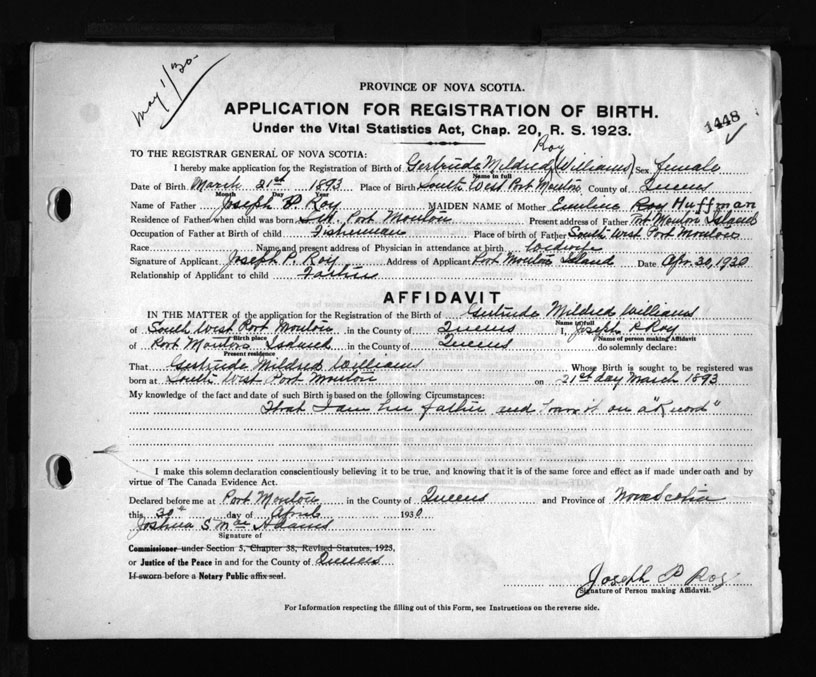 May 1/30.
PROVINCE OF NOVA SCOTIA.
APPLICATION FOR REGISTRATION OF BIRTH.
1448
Under the Vital Statistics Act, Chap. 20, R. S. 1923.
TO THE REGISTRAR GENERAL OF NOVA SCOTIA:
Roy
I hereby make application for the Registration of Birth of Gertrude Mildred (Williams) Sex female
Name in full
Date of Birth March 21st 1893 Place of Birth South West Port Mouton County of Queens
Month Day Year
Name of Father Joseph P. Roy MAIDEN NAME of Mother Emeline Roy Huffman
Residence of Father when child was born S.W. Port Mouton Present address of Father Port Mouton Island
Occupation of Father at Birth of child Fisherman Place of birth of Father South West Port Mouton
Race Name and present address of Physician in attendance at birth Midwife
Signature of Applicant Joseph P. Roy Address of Applicant Port Mouton Island Date Apr. 30, 1930
Relationship of Applicant to child Father
AFFIDAVIT
IN THE MATTER of the application for the Registration of the Birth of Gertrude Mildred Williams
Name in full
of South West Port Mouton in the County of Queens I, Joseph P Roy
Birth place Name of person making Affidavit
of Port Mouton Island in the County of Queens do solemnly declare:
Present residence
That Gertrude Mildred Williams Whose Birth is sought to be registered was
born at South West Port Mouton on 21st day March 1893
My knowledge of the fact and date of such Birth is based on the following Circumstances:
That I am her father and have it on a "Record"
I make this solemn declaration conscientiously believing it to be true, and knowing that it is of the same force and effect as if made under oath and by
virtue of The Canada Evidence Act.
Declared before me at Port Mouton in the County of Queens and Province of Nova Scotia
this 30th day of April 1930
Joshua S. Mac Adams
Signature of
Commissioner under Section 3, Chapter 38, Revised Statutes, 1923,
or Justice of the Peace in and for the County of Queens
If sworn before a Notary Public affix seal.
Joseph P Roy
Signature of Person making Affidavit.
For Information respecting the filling out of this Form, see Instructions on the reverse side.